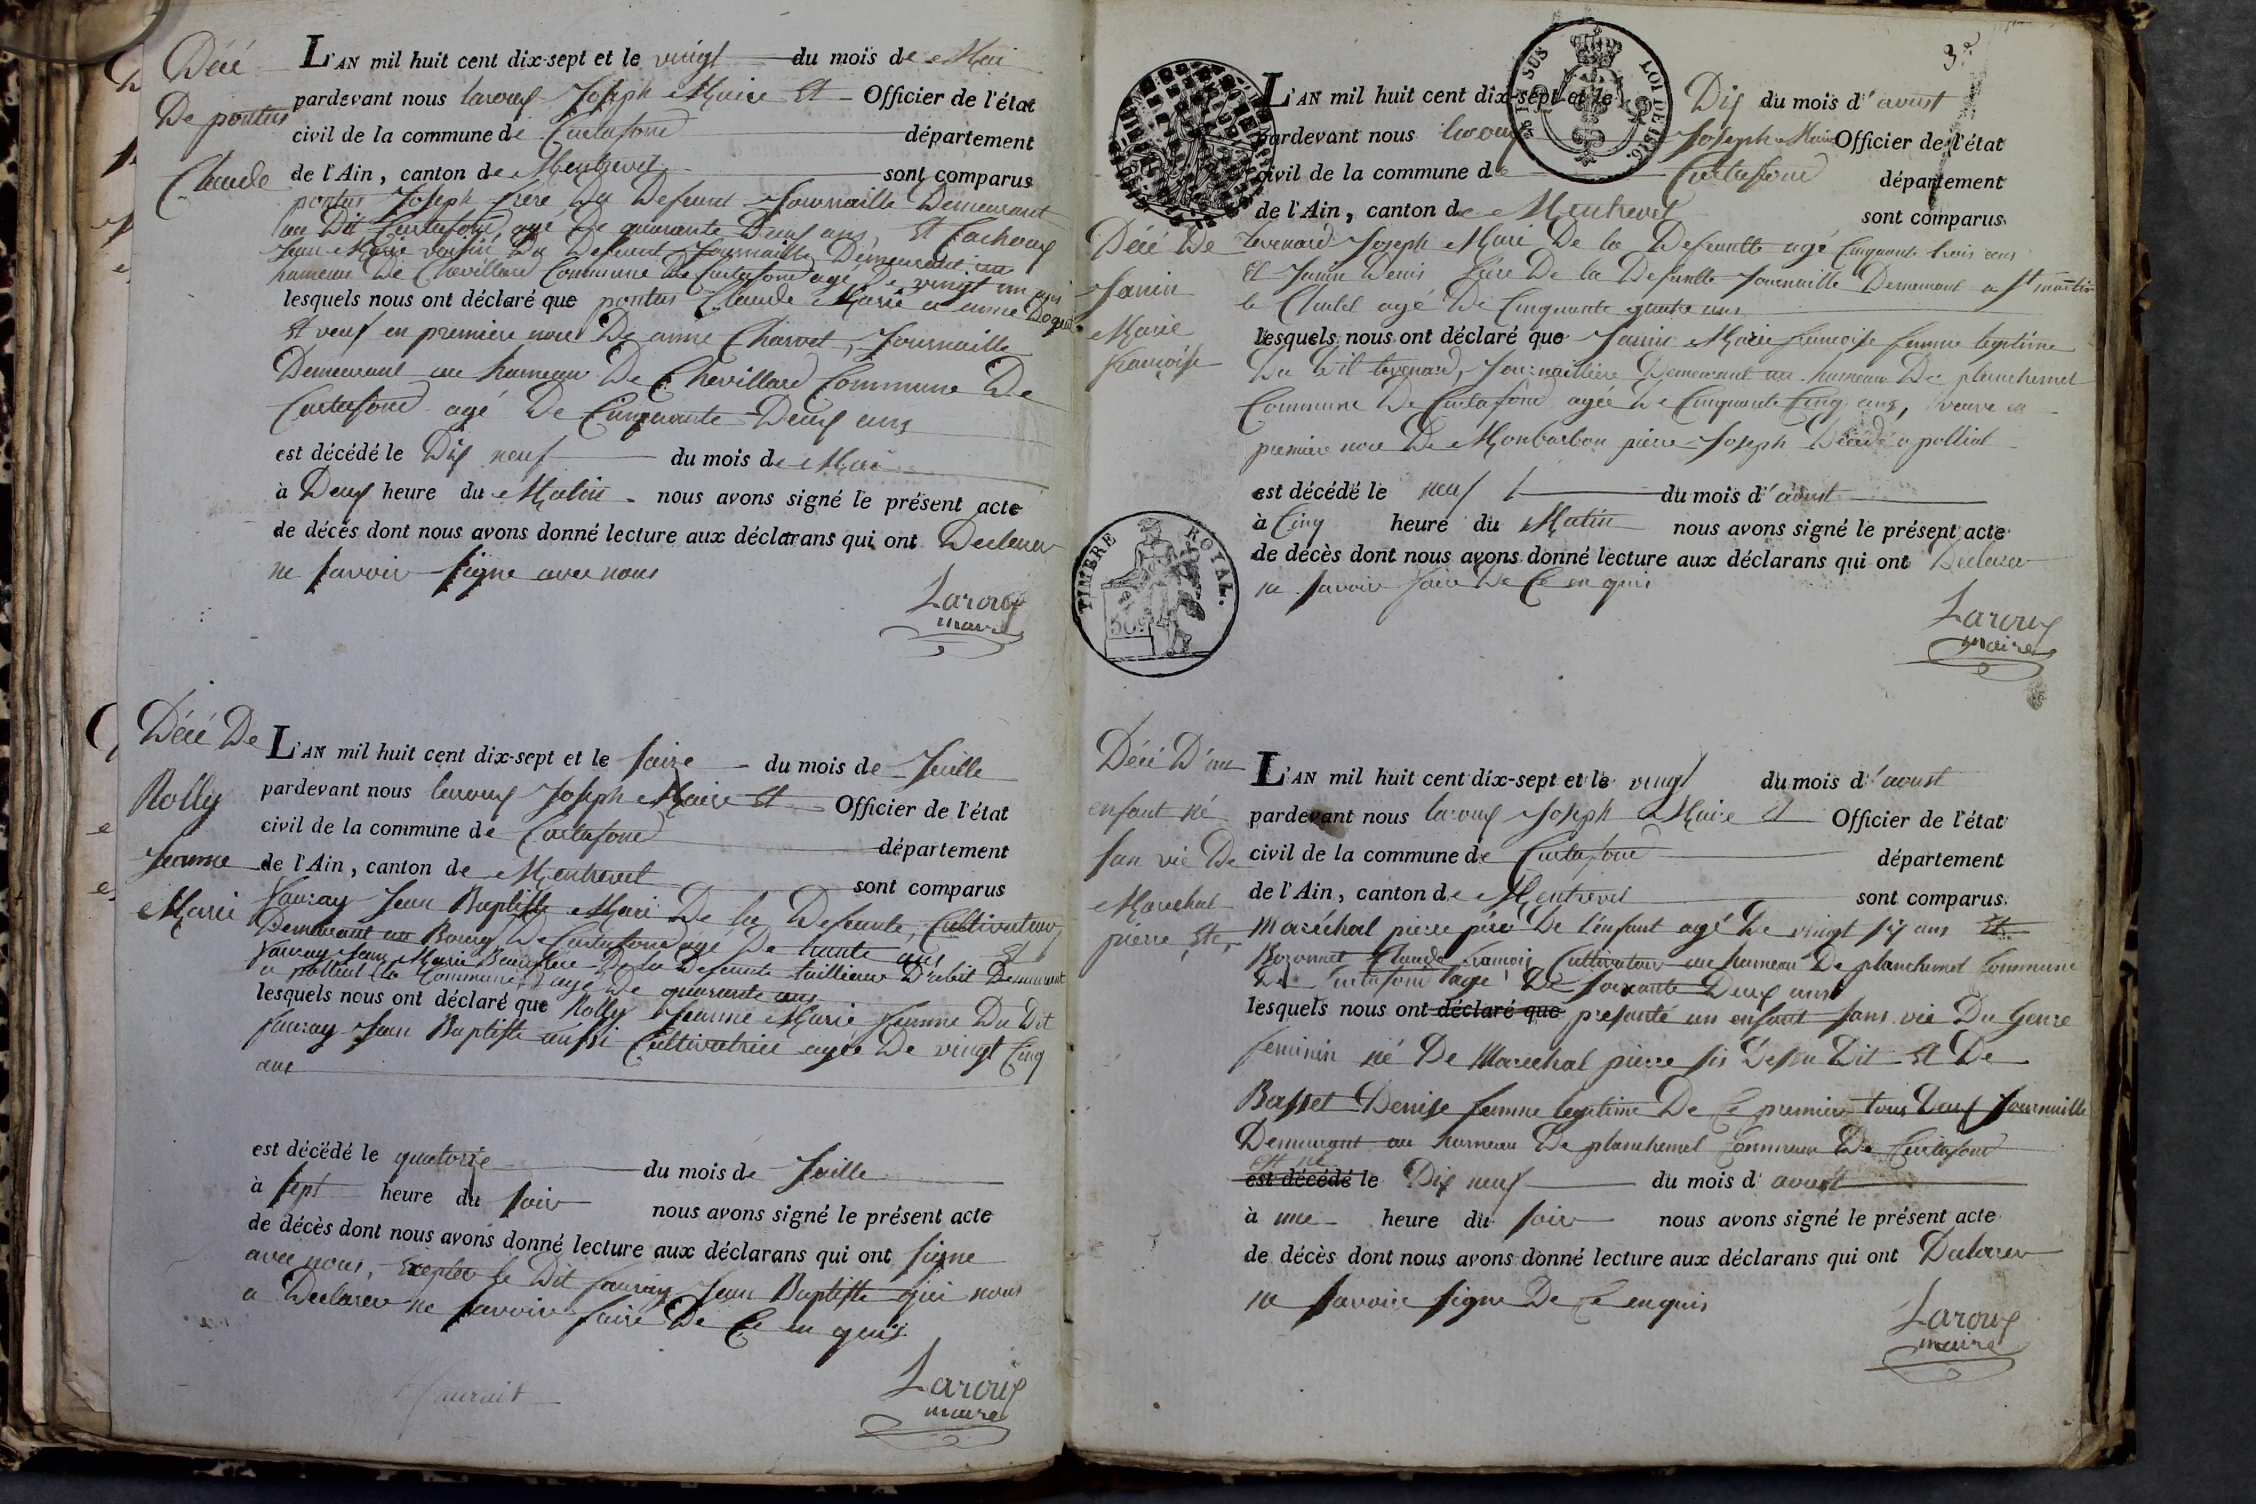 Décé
De pontus
Claude
L'AN mil huit cent dix-sept et le vingt du mois de Mai
pardevant nous laroux Joseph Maire et Officier de l'état
civil de la commune de Curtafond département
de l'Ain, canton de Montrevel sont comparus
pontus Joseph frere Du Defeunt Journaille Demeurant
au Dit Curtafond, agé De quarante Deux ans, et Cachoux
Jean Marie voisin Du Defeunt Journaille Demeurant au
hameau De Chevillard Commune De Curtafond agé De vingt un ans
lesquels nous ont déclaré que pontus Claude Marié a anne
et veuf en premiere noce De anne Charvet, Journaille
Demeurant au hameau De Chevillard Commune De
Curtafond agé De Cinquante Deux ans
est décédé le Dix neuf du mois de Mai
à Deux heure du Matin nous avons signé le présent acte
de décès dont nous avons donné lecture aux déclarans qui ont Declarer
ne savoir signe avec nous
Laroux
maire
Décé De
Rolly
Jeanne
Marie
L'AN mil huit cent dix-sept et le saize du mois de Juille
pardevant nous laroux Joseph Maire et Officier de l'état
civil de la commune de Curtafond département
de l'Ain, canton de Montrevel sont comparus
fauray Jean Baptiste Mari De la Defeunte, Cultivateur,
Demeurant au Bourg De Curtafond agé De trante ans et
fauray Jean Marie Beaufrere De la Defeunte taillieur D'abit Demeurant
a polliat (la Commune) agé De quarante ans
lesquels nous ont déclaré que Rolly Jeanne Marie femme Du Dit
fauray Jean Baptiste aussi Cultivatrice agée De vingt Cinq
ans
est décédé le quatorze du mois de Juille
à sept heure du soir nous avons signé le présent acte
de décès dont nous avons donné lecture aux déclarans qui ont signe
avec nous, Excepter le Dit fauray Jean Baptiste qui nous
a Declarer ne savoir faire De Ce en quis
Laroux
maire
3e
25 EN SUS LOI DE 1816.
TIMBRE ROYAL.
50c
Décé De
Janin
Marie
françoise
L'AN mil huit cent dix-sept et le Dix du mois d'aoust
pardevant nous laroux Joseph Maire Officier de l'état
civil de la commune de Curtafond département
de l'Ain, canton de Montrevel sont comparus
tevenard Joseph Mari De la Defeunte agé Cinquante trois ans
et Janin Denis frère De la Defunte Journaille Demeurant a St martin
le Chatel agé De Cinquante quatre ans
lesquels nous ont déclaré que Janin Marie francoise femme legitime
Du Dit tevenard, Journailliere Demeurant au hameau De planchemel
Commune De Curtafond agée De Cinquante Cinq ans, veuve en
premiere noce De Monbarbon pierre Joseph Décédé a polliat
est décédé le neuf du mois d'aoust
à Cinq heure du Matin nous avons signé le présent acte
de décès dont nous avons donné lecture aux déclarans qui ont Declarer
ne savoir faire De Ce en quis
Laroux
maire
Décé D'un
enfant né
san vie De
Marechal
pierre
L'AN mil huit cent dix-sept et le vingt du mois d'aoust
pardevant nous laroux Joseph Maire et Officier de l'état
civil de la commune de Curtafond département
de l'Ain, canton de Montrevel sont comparus
Maréchal pierre père De l'enfant agé De vingt six ans et
Bozonnet Claude francois Cultivateur au hameau De planchemel Commune
De Curtafond agé De soixante Deux ans
lesquels nous ont déclaré que presanté un enfant sans vie Du Genre
feminin né De Marechal pierre sis Desu Dit et De
Basset Denise femme legitime De Ce premier tous Deux Journaille
Demeurant au hameau De planchemel Commune De Curtafond
et né
est décédé le Dix neuf du mois d'aoust
à une heure du soir nous avons signé le présent acte
de décès dont nous avons donné lecture aux déclarans qui ont Declarer
ne savoir signe De Ce enquis
Laroux
maire